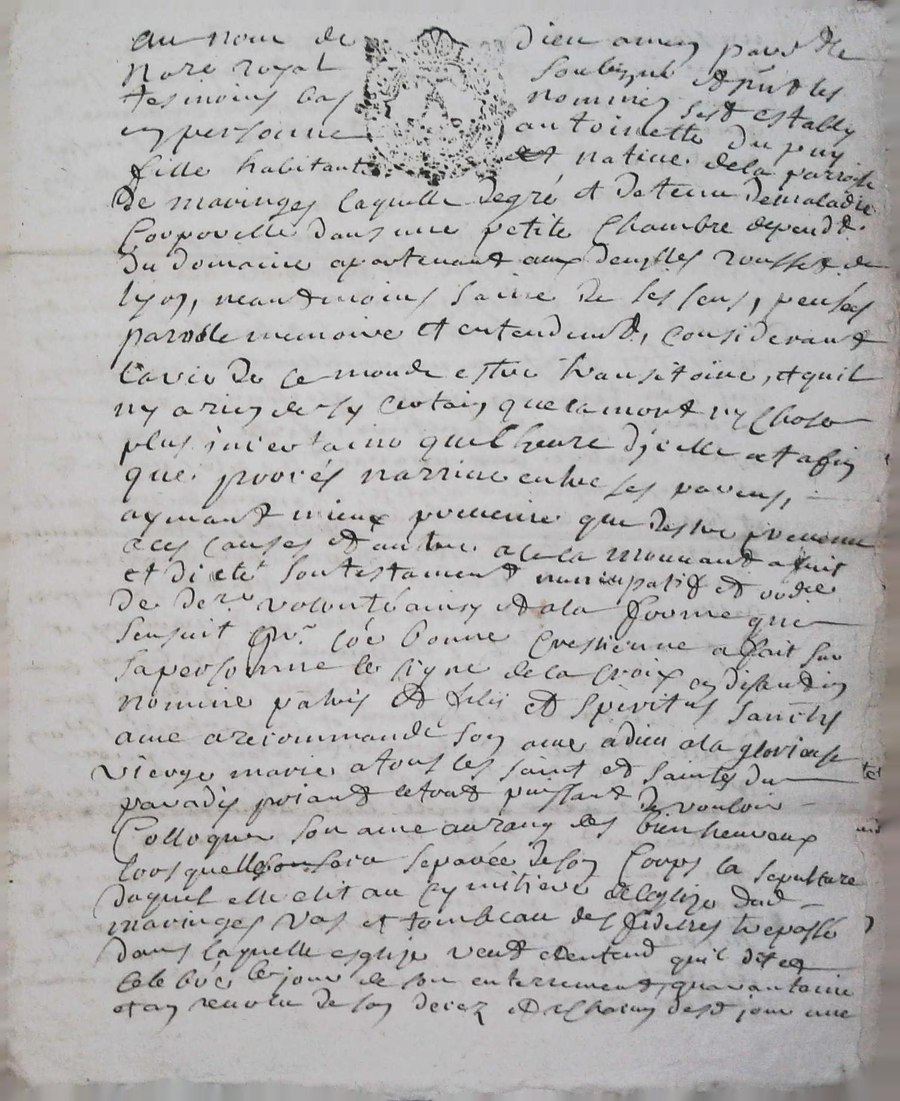 au nom de dieu amen par dt le
No.re royal soubzne et pnt les
tesmoins bas nommez sest estably
en personne antoinette du puy
fille habitante et natiue de la parroisse
de maringes laquelle de gré et detenu de maladie
Corporelle dans une petite Chambre depend.t
du domaine apartenant aux dlles rousset de
lyon, neantmoins saine de ses sens, pensées
parolle memoire et entendem.t, considerant
la vie de ce monde estre transitoire, et quil
ny a rien de sy certain que la mort ny chose
plus incertaine que lheure dicelle et afin
que procés narriue entre ses parens,
aymant mieux preuenir que destre preuenue
a ces causes et autre a ce la mouuant a fait
et dicté son testament nuncupatif et ordre
de der.re volonté ainsy et a la forme que
sensuit p.r coe bonne crestienne a fait sur
sa personne le signe de la croix en disant in
nomine patris et filii et spiritus sancty
ame a recommandé son ame a dieu a la glorieuse
vierge marie a tous les saint et saintes du
paradis priant le tout puissant de vouloir
Colloquer son ame au rang des bienheureux
lors quelle sera separée de son Corps la sepulture
duquel elle elit au cymitiere de leglize dud
maringes vas et tombeau des fideles trepassé
dans laquelle esglize veut et entend quil dit et
celebré le jour de son enterrement, quarantaine
et an reuolu de son decez et a chacun desd jour une